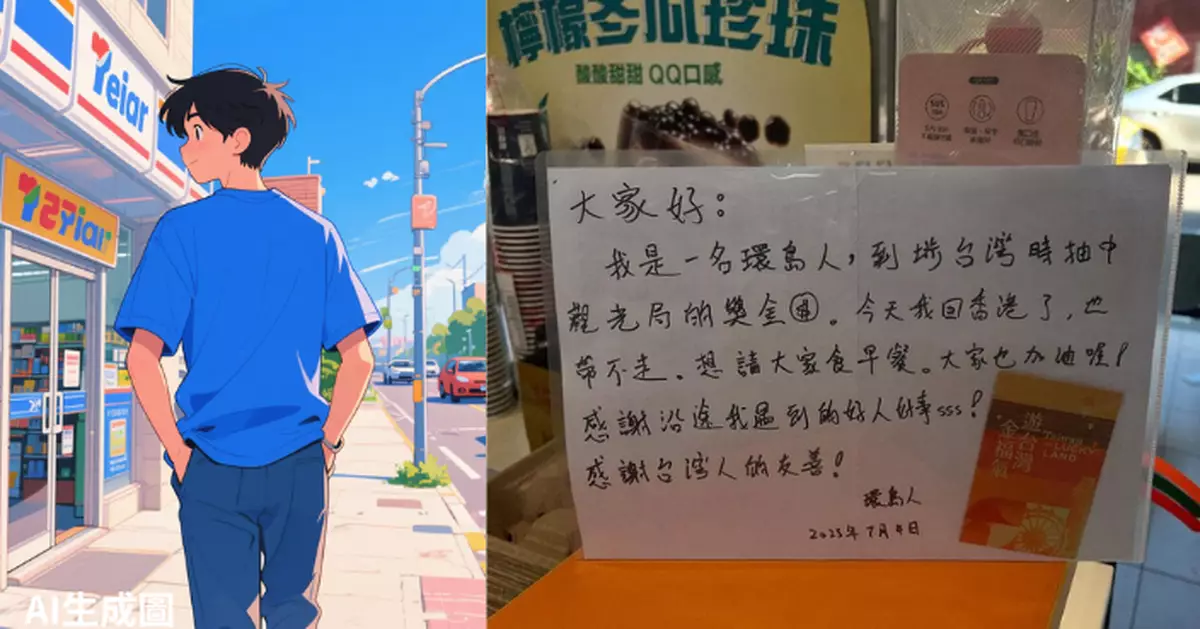 Yeiar
AI生成圖
檸檬冬瓜珍珠
酸酸甜甜 QQ口感
大家好：
我是一名環島人，到埗台灣時抽中
觀光局的獎金。今天我回香港了，也
帶不走。想請大家食早餐。大家也加油喔！
感謝沿途我遇到的好人好事sss！
感謝台灣人的友善！
環島人
2025年7月4日
遊台灣
金福氣
THE LUCKY
LAND